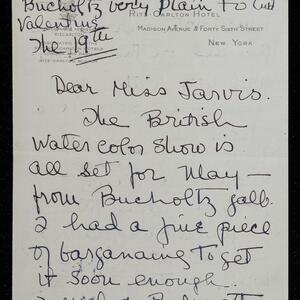 Bucholtz very plain to
Valentine
The 19th
RITZ-CARLTON HOTEL
MADISON AVENUE & FORTY SIXTH STREET
NEW YORK
Dear Miss Jarvis.
The British
Water color Show is
all set for May –
from Bucholtz gall.
I had a fine piece
of barganing to get
it soon enough.